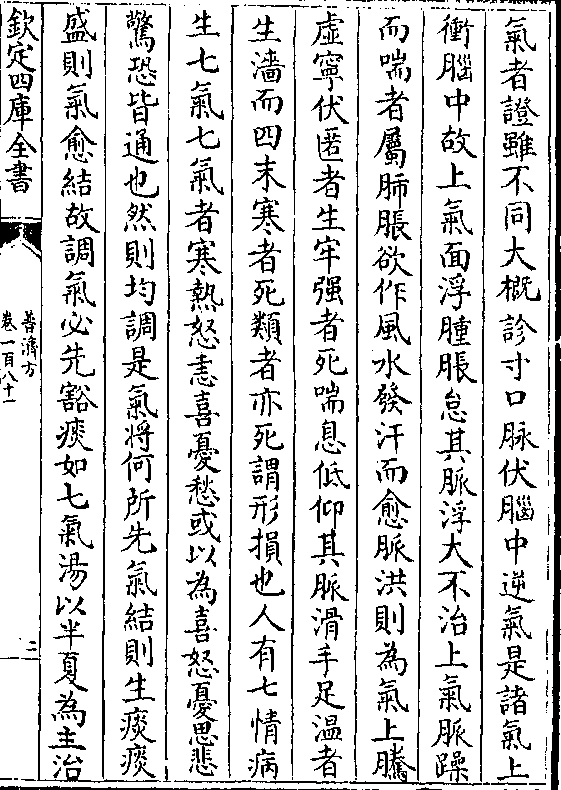 氣者證雖不同大概診寸口脉伏腦中逆氣是諸氣上
衝腦中故上氣面浮腫脹怠其脈浮大不治上氣脈躁
而喘者屬肺脹欲作風水發汗而愈脈洪則為氣上騰
虛寧伏匿者生牢强者死喘息低仰其脈滑手足温者
生濇而四末寒者死類者亦死謂形損也人有七情病
生七氣七氣者寒熱怒恚喜憂愁或以為喜怒憂思悲
驚恐皆通也然則均調是氣將何所先氣結則生痰痰
盛則氣愈結故調氣必先豁痰如七氣湯以半夏為主治
欽定四庫全書
普濟方
卷一百八十一
二